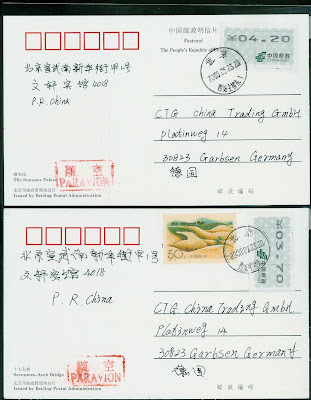 中国邮政明信片
Postcard
The People's Republic
¥04.20
中国邮政
CHINA POST
北京
北京宣武南新华街甲1号
文轩宾馆4018
P.R. China
CTG China Trading GmbH
Platinweg 14
30823 Garbsen Germany
德国
航空
PAR AVION
颐和园
The Summer Palace
北京市邮政管理局发行
Issued by BeiJing Postal Administration
邮政编码
50分
¥03.70
中国邮政
北京
北京宣武南新华街甲1号
文轩宾馆4018
P.R. China
CTG China Trading GmbH.
Platinweg 14
30823 Garbsen Germany
德国
航空
PAR AVION
十七孔桥
Seventeen-Arch Bridge
北京市邮政管理局发行
Issued by BeiJing Postal Administration
邮政编码